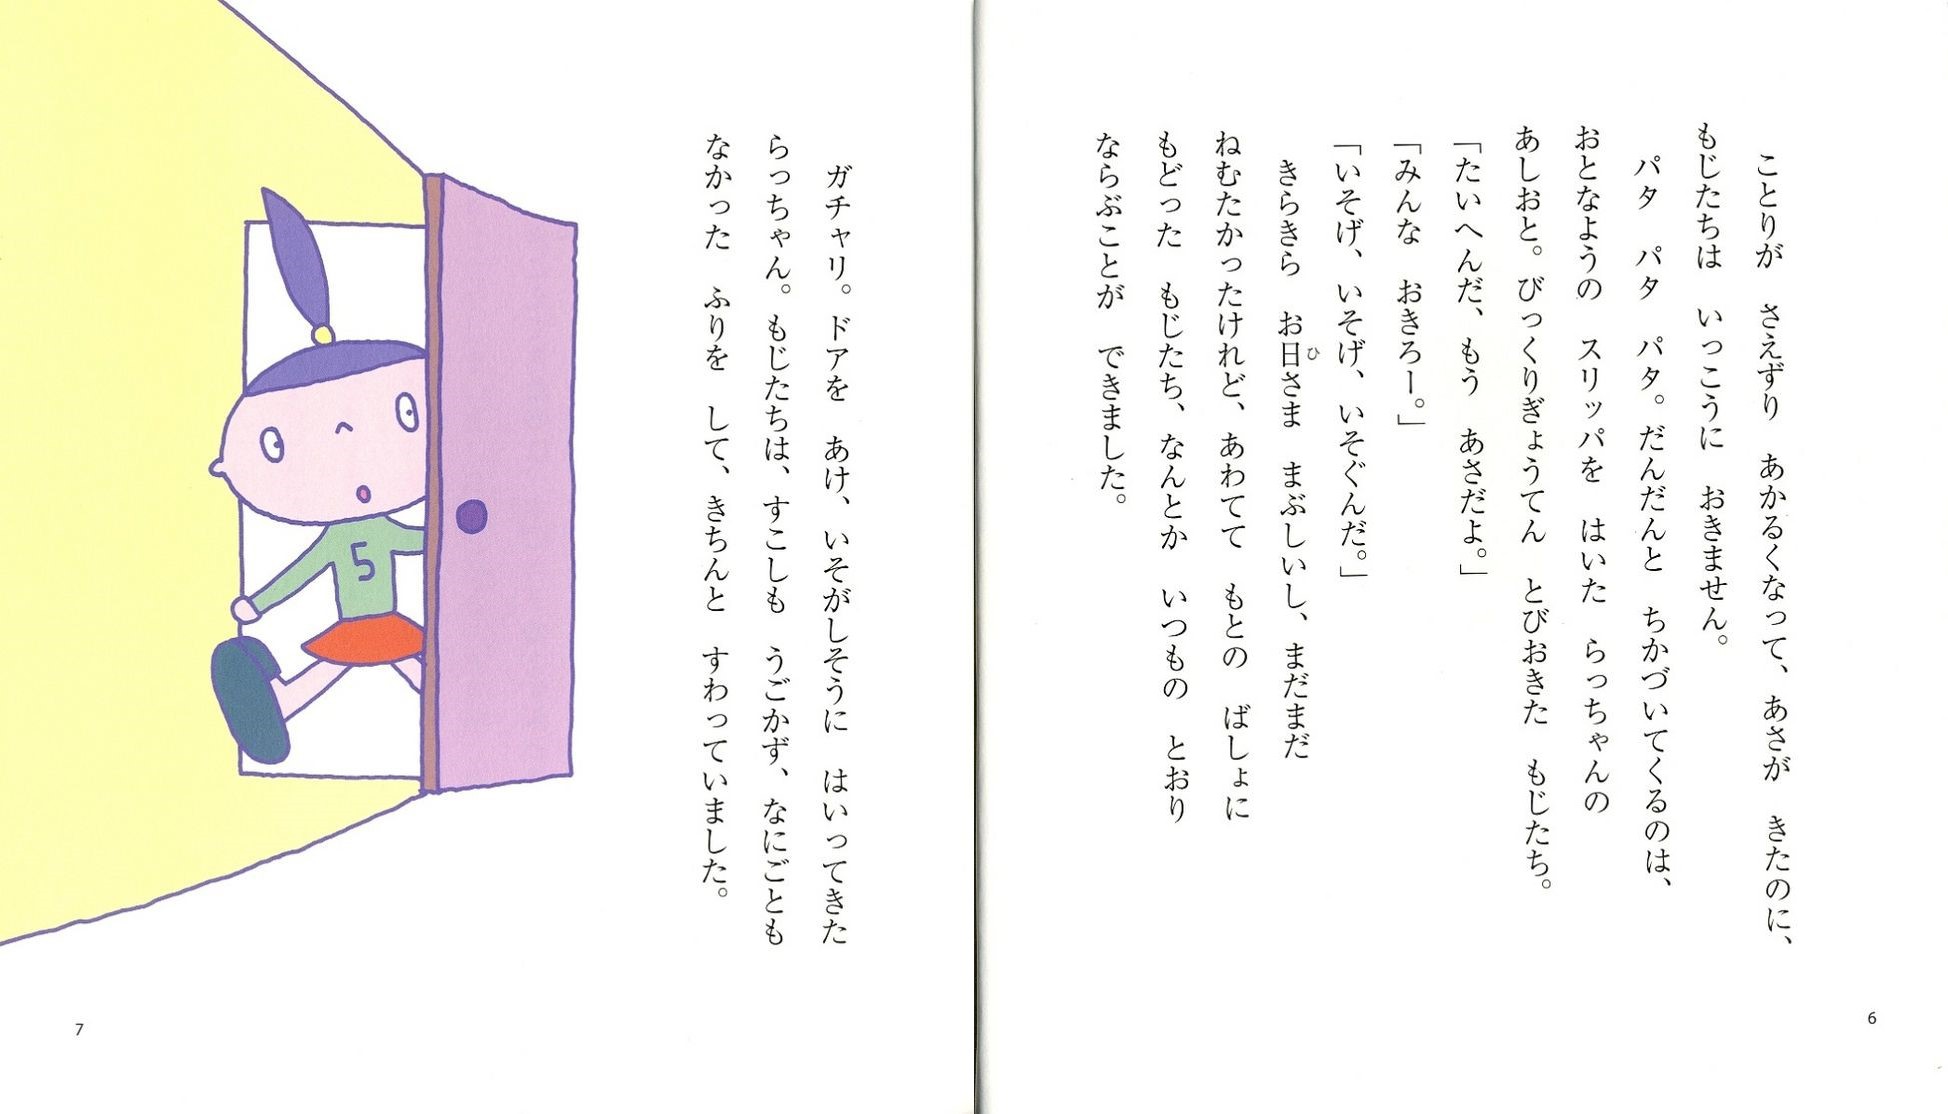 ことりが　さえずり　あかるくなって、あさが　きたのに、
もじたちは　いっこうに　おきません。
パタ　パタ　パタ。だんだんと　ちかづいてくるのは、
おとなようの　スリッパを　はいた　らっちゃんの
あしおと。びっくりぎょうてん　とびおきた　もじたち。
「たいへんだ、もう　あさだよ。」
「みんな　おきろー。」
「いそげ、いそげ、いそぐんだ。」
きらきら　お日さま　まぶしいし、まだまだ
ひ
ねむたかったけれど、あわてて　もとの　ばしょに
もどった　もじたち、なんとか　いつもの　とおり
ならぶことが　できました。
6
ガチャリ。ドアを　あけ、いそがしそうに　はいってきた
らっちゃん。もじたちは、すこしも　うごかず、なにごとも
なかった　ふりを　して、きちんと　すわっていました。
5
7